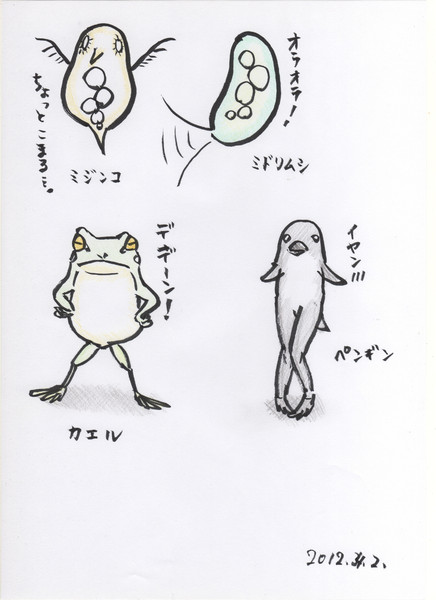 オラオラ！
ちょっとこまるぅ…。
ミジンコ
ミドリムシ
デデーン！
イヤン///
ペンギン
カエル